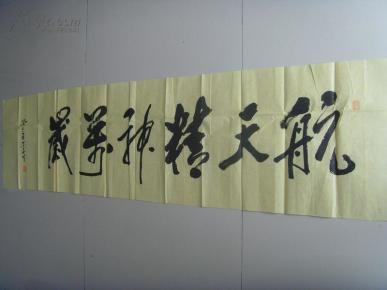 航天精神萬歲